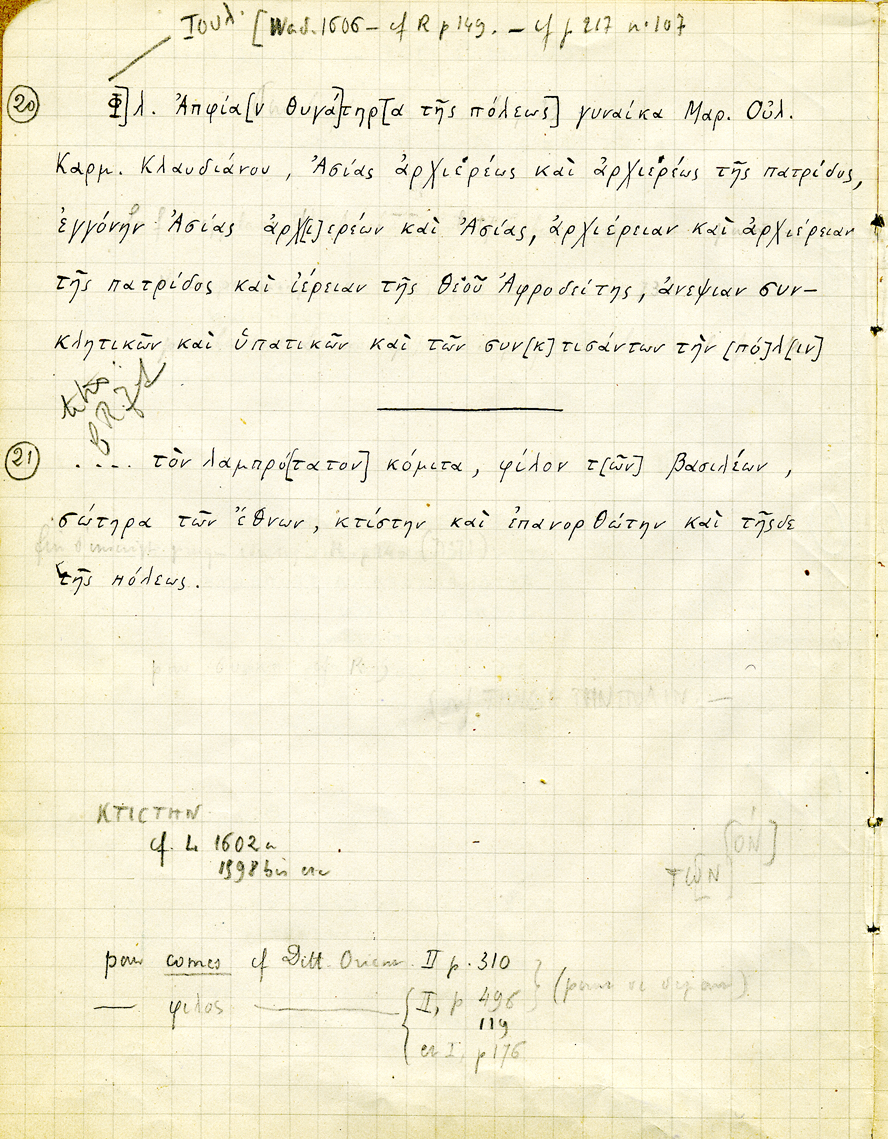 Ιουλ. [Wad. 1606 – cf R p 149. – cf p 217 n. 107
20 Φ]λ. Ἀπφία[ν θυγά]τηρ[α τῆς πόλεως] γυναίκα Μαρ. Οὐλ.
Καρμ. Κλαυδιάνου, Ἀσίας ἀρχιερέως καὶ ἀρχιερέως τῆς πατρίδος,
ἐγγόνην Ἀσίας ἀρχ[ι]ερέων καὶ Ἀσίας, ἀρχιέρειαν καὶ ἀρχιέρειαν
τῆς πατρίδος καὶ ἱέρειαν τῆς θεοῦ Ἀφροδείτης, ἀνεψιαν συν–
κλητικῶν καὶ ὑπατικῶν καὶ τῶν συν[κ]τισάντων τὴν [πό]λ[ιν]
21 . . . . τὸν λαμπρό[τατον] κόμιτα, φίλον τ[ῶν] βασιλέων,
σώτηρα τῶν ἔθνων, κτίστην καὶ ἐπανορθώτην καὶ τῆσδε
τῆς πόλεως.
ΚΤΙCΤΗΝ
cf. L 1602a
1598 bis etc
τῶν [όν]
pour comes cf Ditt. Orient. II p. 310
— φιλος — II, p 496
119
et I, p 176